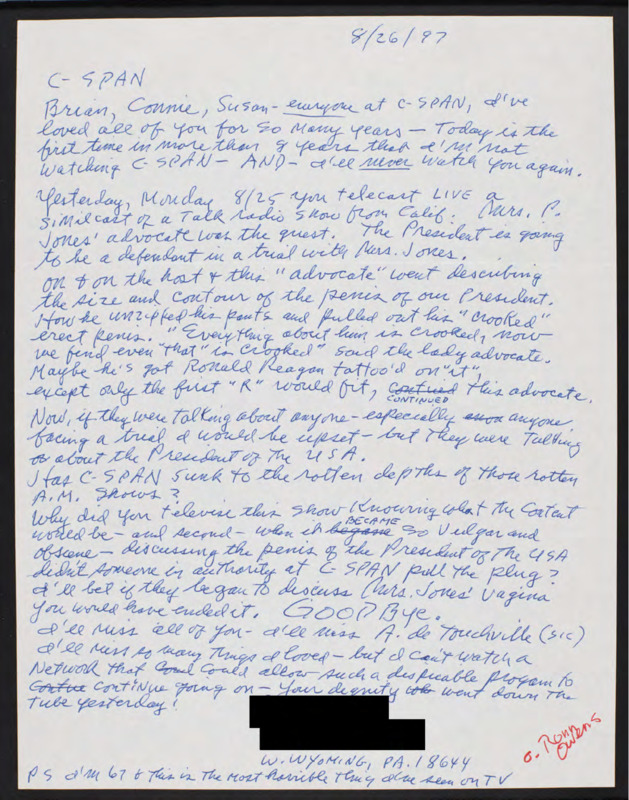 8/26/97
C-SPAN
Brian, Connie, Susan - everyone at C-SPAN, I've
loved all of you for so many years - Today is the
first time in more than 8 years that I'm not
watching C-SPAN - AND - I'll never watch you again.
Yesterday, Monday 8/25 you telecast LIVE a
similcast of a Talk radio show from Calif. Mrs. P.
Jones' advocate was the guest. The President is going
to be a defendant in a trial with Mrs. Jones.
on & on the host & this "advocate" went describing
the size and contour of the penis of our President.
How he unzipped his pants and pulled out his "crooked"
erect penis. "Everything about him is crooked, now
we find even "that" is crooked" said the lady advocate.
Maybe he's got Ronald Reagan tattoo'd on "it",
except only the first "R" would fit, CONTINUED this advocate.
Now, if they were talking about anyone - especially anyone
facing a trial I would be upset - but they were talking
about the President of the USA.
Has C-SPAN sunk to the rotten depths of those rotten
A.M. shows?
Why did you televise this show knowing what the content
would be - and second - when it BECAME so vulgar and
obscene - discussing the penis of the President of the USA
didn't someone in authority at C-SPAN pull the plug?
I'll bet if they began to discuss Mrs. Jones' vagina
you would have ended it. GOODBye.
I'll miss all of you - I'll miss A. de Touchville (sic)
I'll miss so many things I loved - but I can't watch a
Network that could allow such a despicable progam to
continue going on - Your dignity went down the
tube yesterday!
W. WYOMING, PA. 18644
PS I'm 67 & this is the most horrible thing I've seen on TV
Ronn
Owens